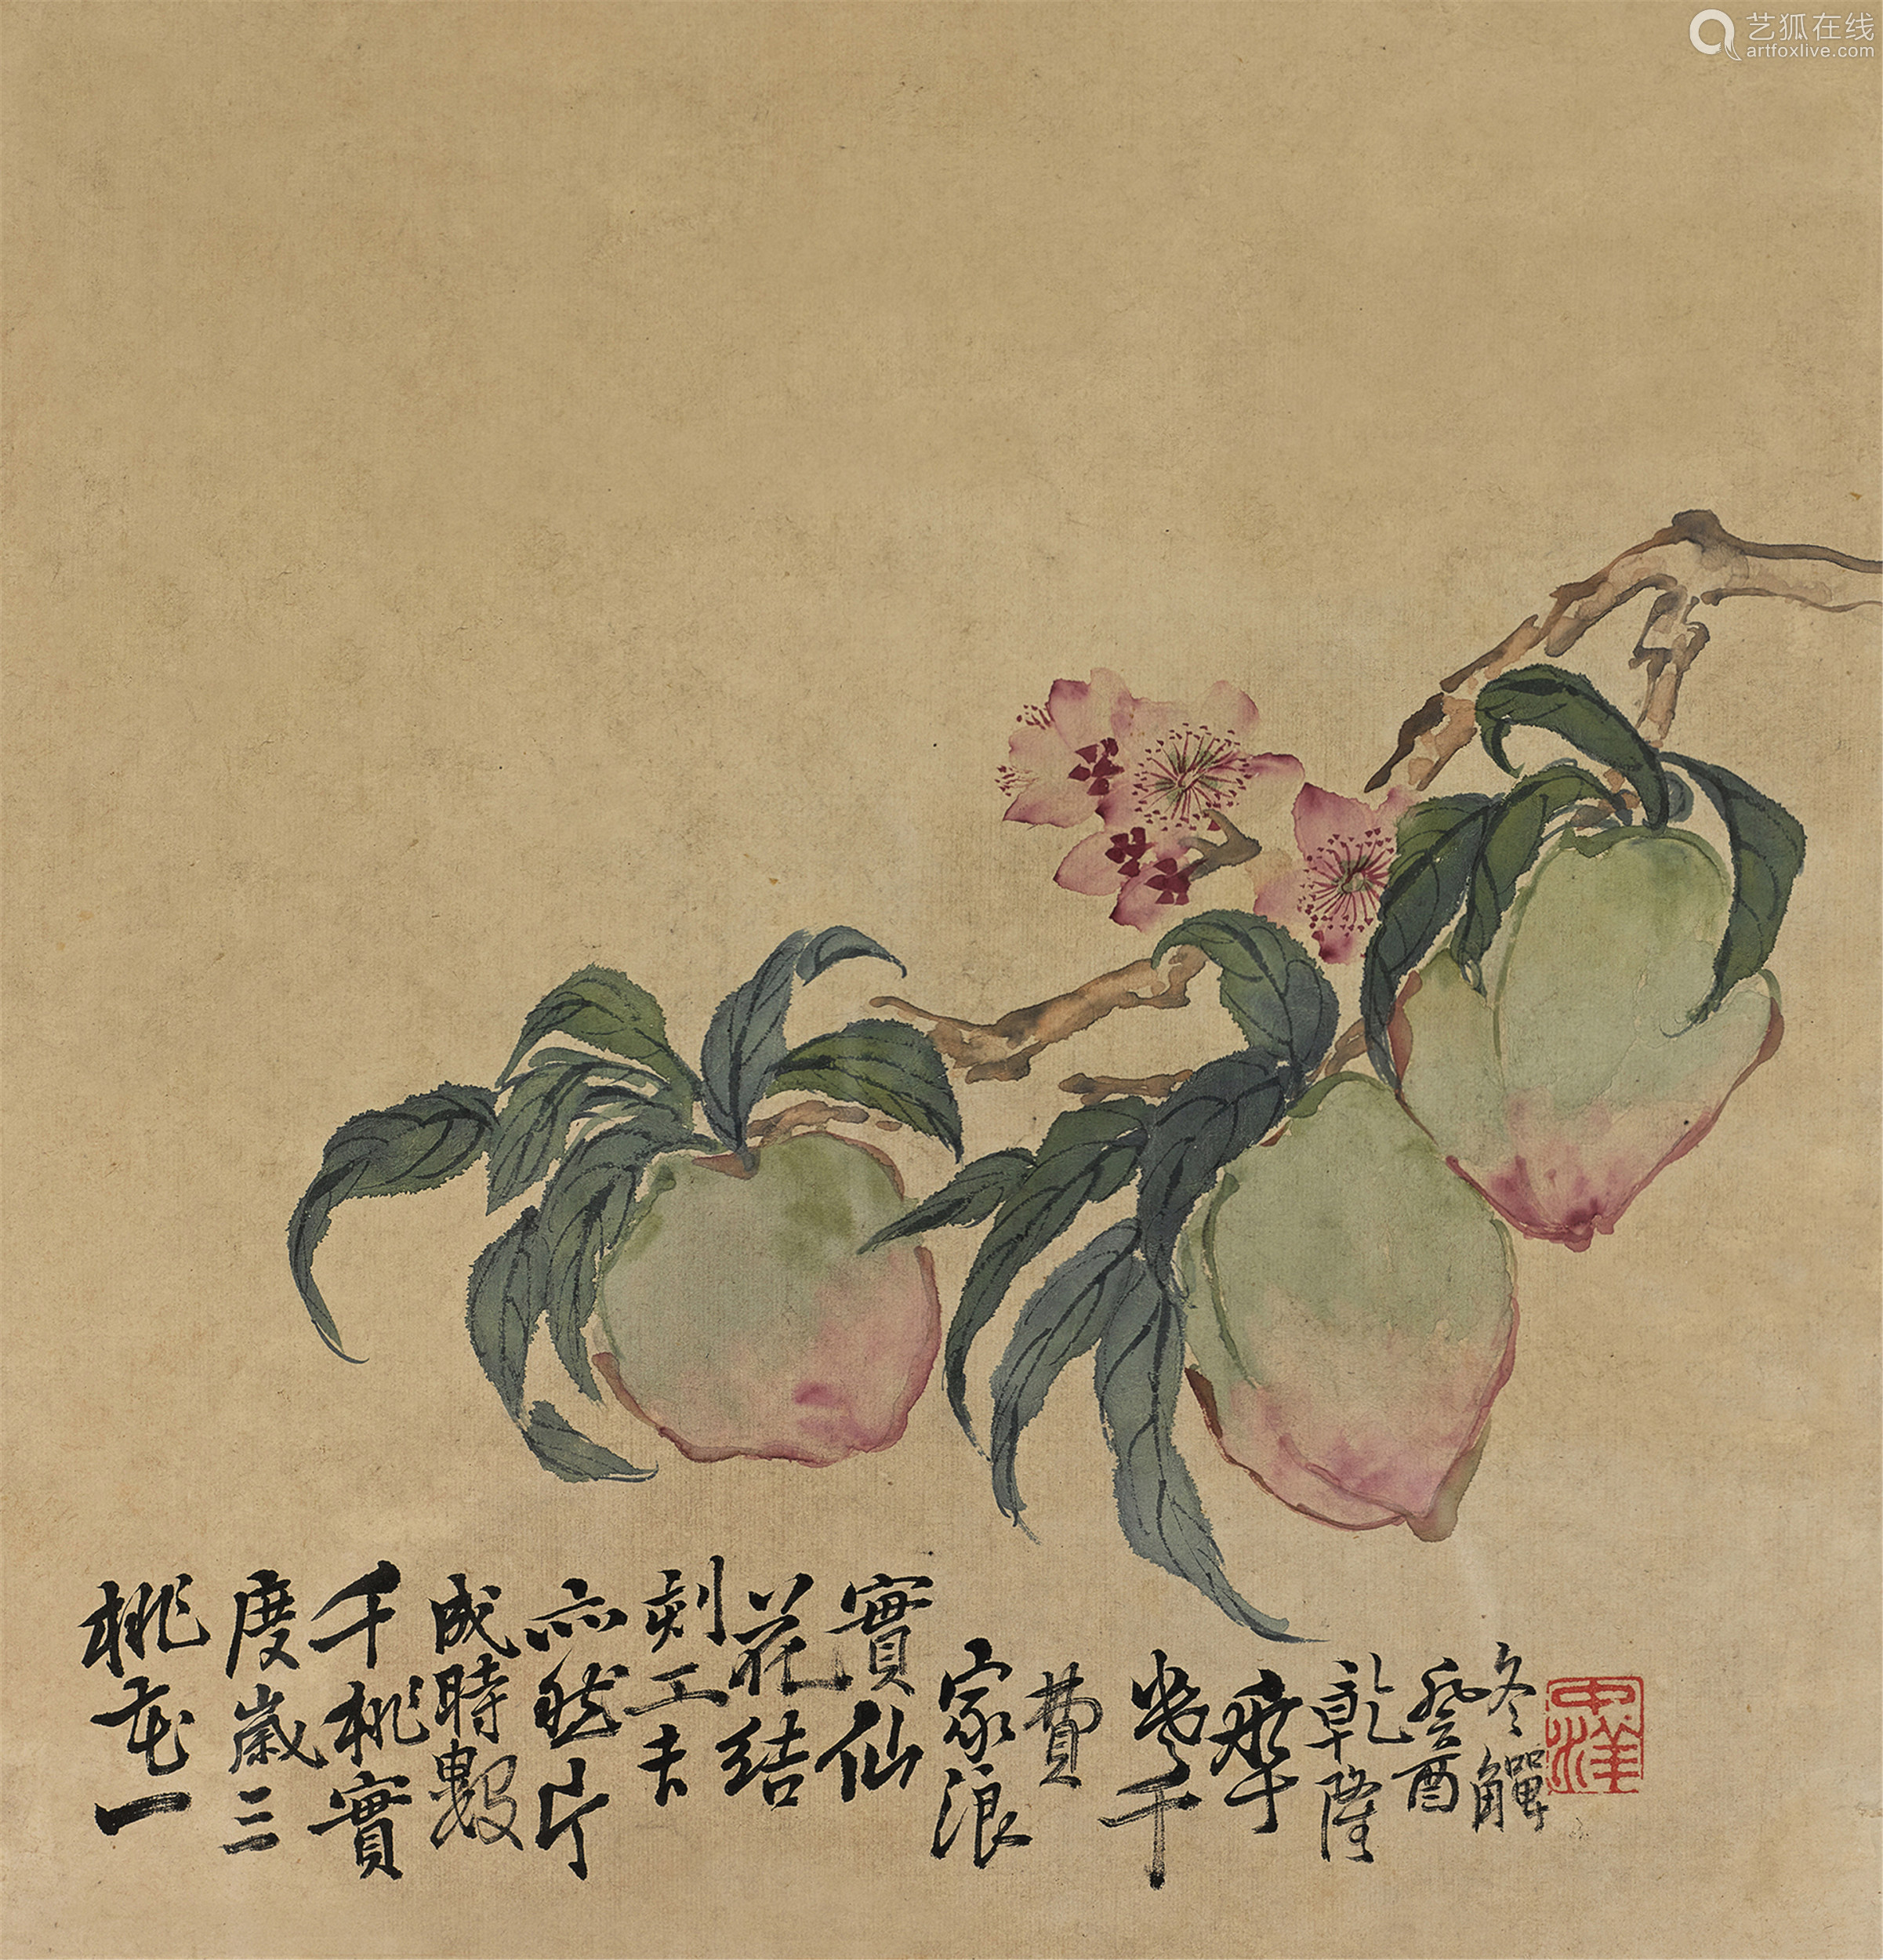 艺狐在线
artfoxlive.com
桃花一
度歲三
千桃實
成時數
亦然片
刻工夫
花結
實仙
家浪
費
幾千
年
乾隆
癸酉
冬觶
中洋